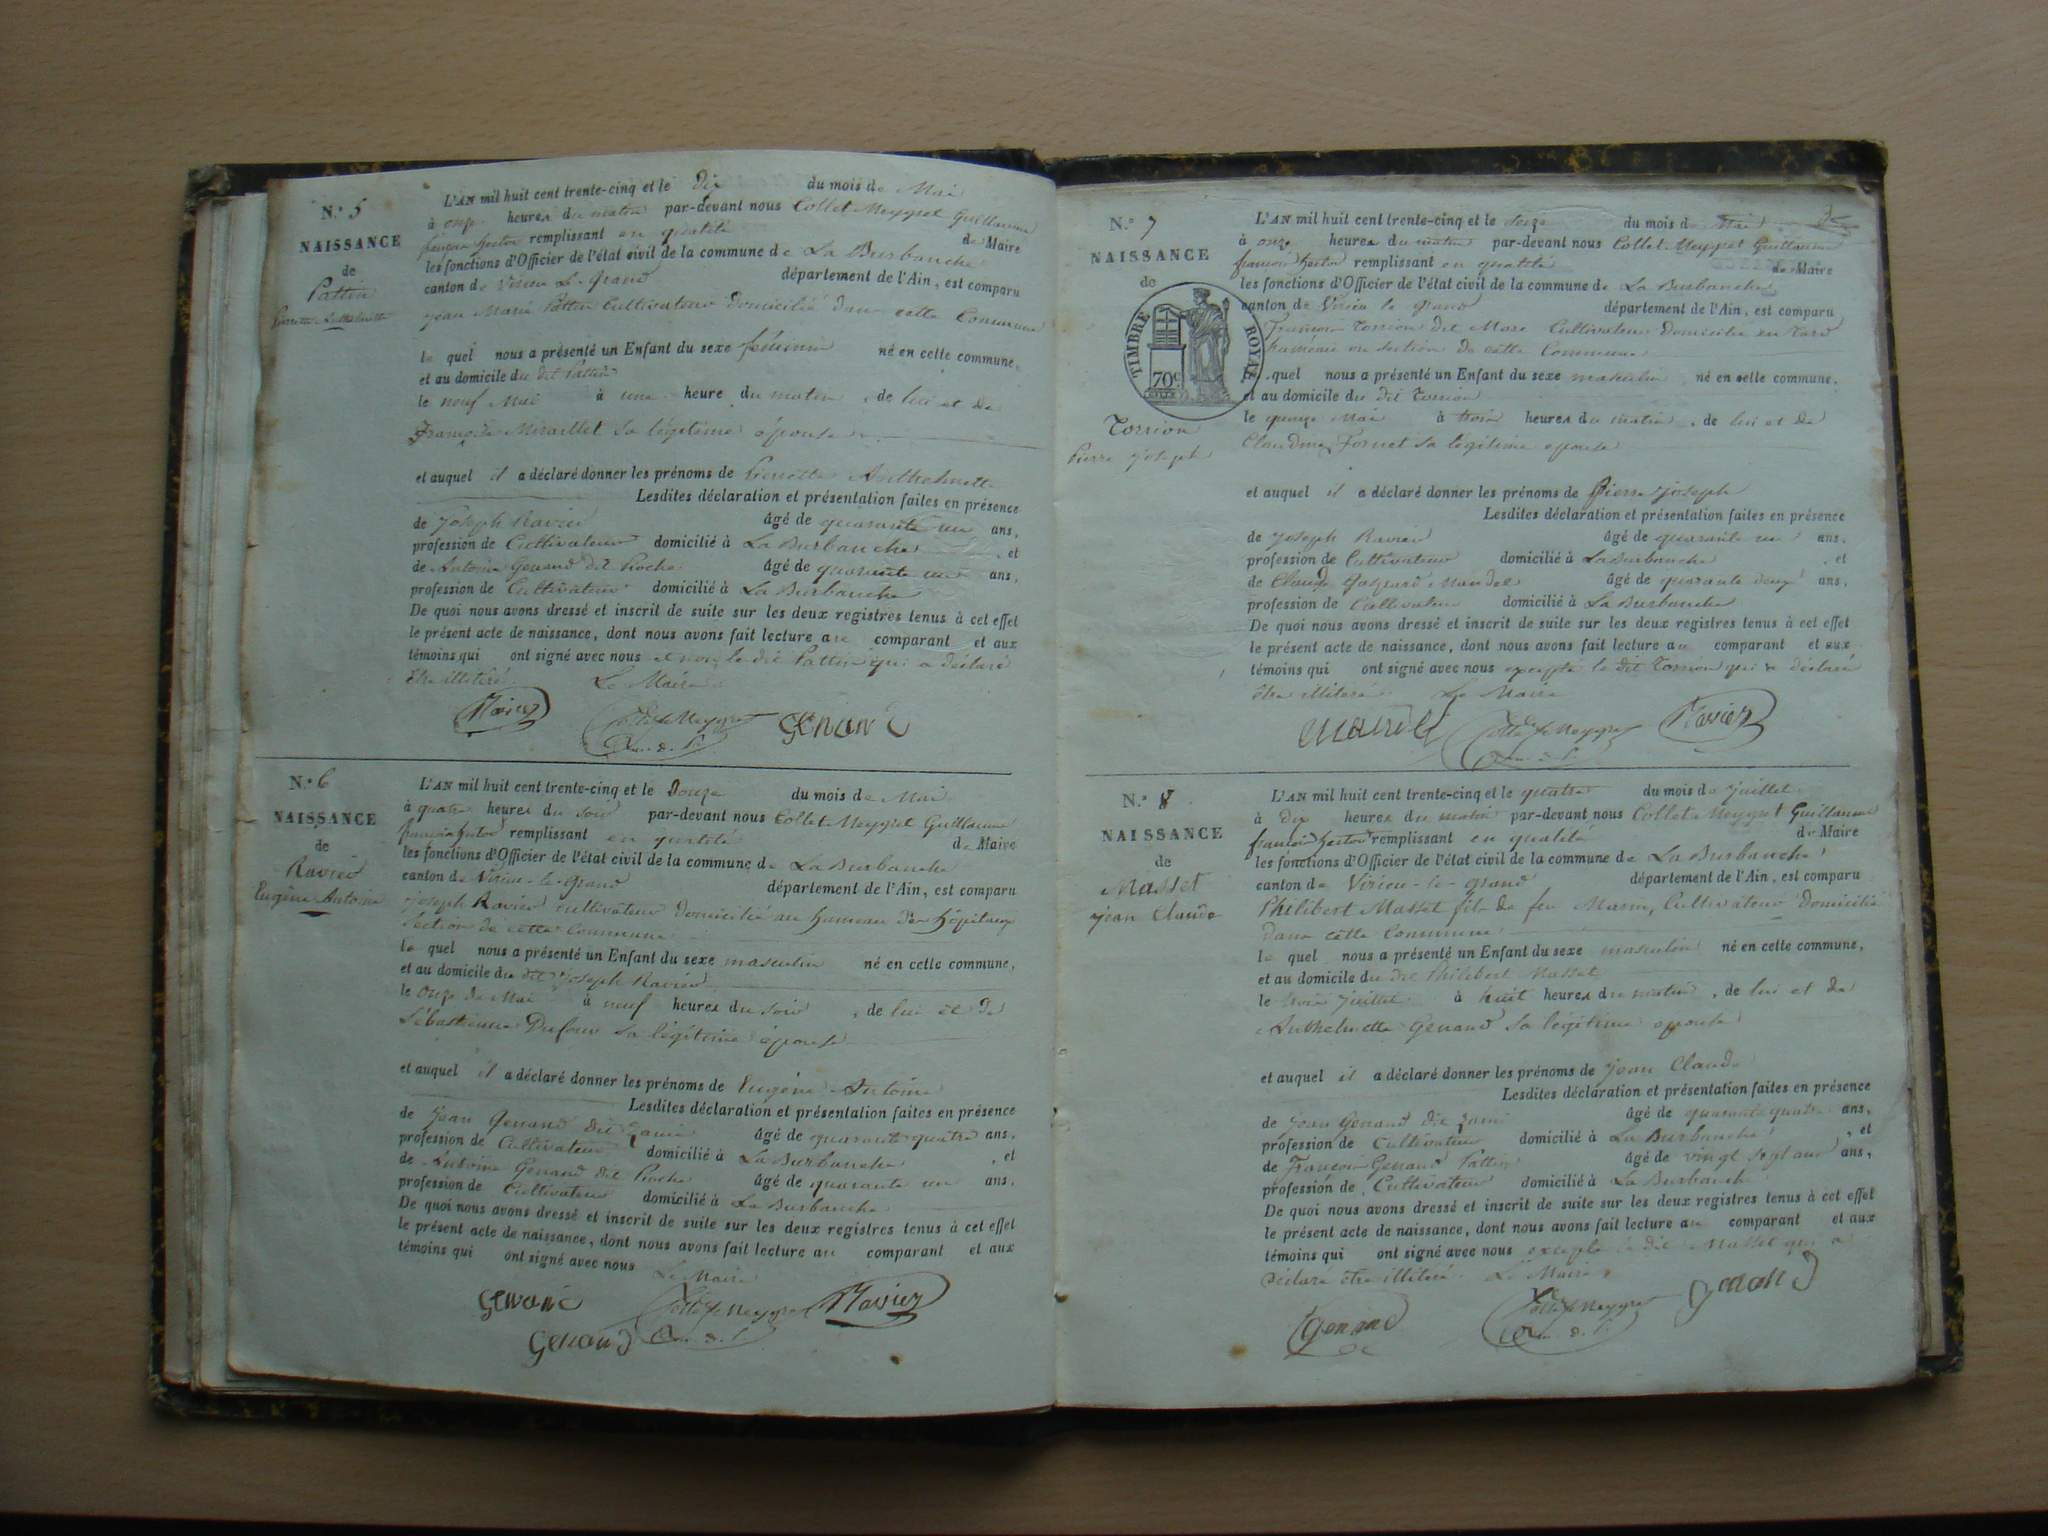 N.º 5
NAISSANCE
de
Pattin
Pierrette Anthelmette
L'AN mil huit cent trente-cinq et le dix du mois de Mai
à onze heures du matin par-devant nous Collet-Meygret Guillaume
françois hector remplissant en qualité de Maire
les fonctions d'Officier de l'état civil de la commune de La Burbanche
canton de Virieu Le Grand département de l'Ain, est comparu
Jean Marie Pattin Cultivateur domicilié dans cette Commune
le quel nous a présenté un Enfant du sexe féminin né en cette commune,
et au domicile du dit Pattin
le neuf Mai à une heure du matin, de lui et de
Françoise Miraillet sa légitime épouse
et auquel il a déclaré donner les prénoms de Pierrette Anthelmette
Lesdites déclaration et présentation faites en présence
de Joseph Ravier âgé de quarante un ans,
profession de Cultivateur domicilié à La Burbanche, et
de Antoine Genand dit Pioche âgé de quarante un ans,
profession de Cultivateur domicilié à La Burbanche
De quoi nous avons dressé et inscrit de suite sur les deux registres tenus à cet effet
le présent acte de naissance, dont nous avons fait lecture au comparant et aux
témoins qui ont signé avec nous et non le dit Pattin qui a déclaré
être illitéré. Le Maire
Ravier Collet-Meygret Genand
N.º 6
NAISSANCE
de
Ravier
Eugène Antoine
L'AN mil huit cent trente-cinq et le Douze du mois de Mai
à quatre heures du soir par-devant nous Collet-Meygret Guillaume
françois hector remplissant en qualité de Maire
les fonctions d'Officier de l'état civil de la commune de La Burbanche
canton de Virieu-le-grand département de l'Ain, est comparu
Joseph Ravier cultivateur domicilié au hameau des hôpitaux
section de cette Commune
le quel nous a présenté un Enfant du sexe masculin né en cette commune,
et au domicile du dit Joseph Ravier
le onze de Mai à neuf heures du soir, de lui et de
Sébastienne Dufour sa légitime épouse
et auquel il a déclaré donner les prénoms de Eugène Antoine
Lesdites déclaration et présentation faites en présence
de Jean Genand dit âgé de quarante quatre ans,
profession de Cultivateur domicilié à La Burbanche, et
de Antoine Genand dit Pioche âgé de quarante un ans,
profession de Cultivateur domicilié à La Burbanche
De quoi nous avons dressé et inscrit de suite sur les deux registres tenus à cet effet
le présent acte de naissance, dont nous avons fait lecture au comparant et aux
témoins qui ont signé avec nous
Le Maire
Genand Collet-Meygret Ravier
Genand
N.º 7
NAISSANCE
de
TIMBRE ROYAL
70c
Torrion
Pierre Joseph
L'AN mil huit cent trente-cinq et le seize du mois de Mai
à onze heures du matin par-devant nous Collet-Meygret Guillaume
françois hector remplissant en qualité de Maire
les fonctions d'Officier de l'état civil de la commune de La Burbanche
canton de Virieu le grand département de l'Ain, est comparu
François Torrion dit Cultivateur domicilié en
hameau ou section de cette Commune
quel nous a présenté un Enfant du sexe masculin né en cette commune,
et au domicile du dit Torrion
le quinze Mai à trois heures du matin, de lui et de
Claudine Fornet sa légitime épouse
et auquel il a déclaré donner les prénoms de Pierre Joseph
Lesdites déclaration et présentation faites en présence
de Joseph Ravier âgé de quarante un ans,
profession de Cultivateur domicilié à La Burbanche, et
de Claude Gaspard âgé de quarante deux ans,
profession de Cultivateur domicilié à La Burbanche
De quoi nous avons dressé et inscrit de suite sur les deux registres tenus à cet effet
le présent acte de naissance, dont nous avons fait lecture au comparant et aux
témoins qui ont signé avec nous excepté le dit Torrion qui a déclaré
être illitéré Le Maire
Collet-Meygret Ravier
N.º 8
NAISSANCE
de
Masset
Jean Claude
L'AN mil huit cent trente-cinq et le quatre du mois de Juillet
à dix heures du matin par-devant nous Collet-Meygret Guillaume
françois hector remplissant en qualité de Maire
les fonctions d'Officier de l'état civil de la commune de La Burbanche
canton de Virieu-le-grand département de l'Ain, est comparu
Philibert Masset fils de feu Marin, Cultivateur domicilié
dans cette Commune
le quel nous a présenté un Enfant du sexe masculin né en cette commune,
et au domicile du dit Philibert Masset
le trois Juillet à huit heures du matin, de lui et de
Anthelmette Genand sa légitime épouse
et auquel il a déclaré donner les prénoms de Jean Claude
Lesdites déclaration et présentation faites en présence
de Jean Genand dit âgé de quarante quatre ans,
profession de Cultivateur domicilié à La Burbanche, et
de François Genand Pattin âgé de vingt sept ans,
profession de Cultivateur domicilié à La Burbanche
De quoi nous avons dressé et inscrit de suite sur les deux registres tenus à cet effet
le présent acte de naissance, dont nous avons fait lecture au comparant et aux
témoins qui ont signé avec nous excepté le dit Masset qui a
déclaré être illitéré. Le Maire
Genand Collet-Meygret Genand